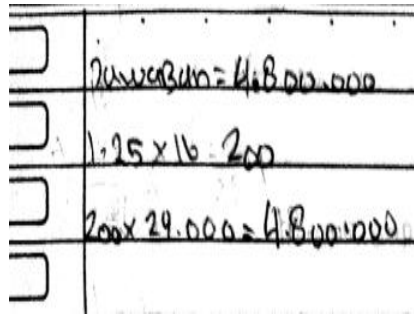 Jawaban = 4.800.000
1.25 x 16 = 200
200 x 24.000 = 4.800.000